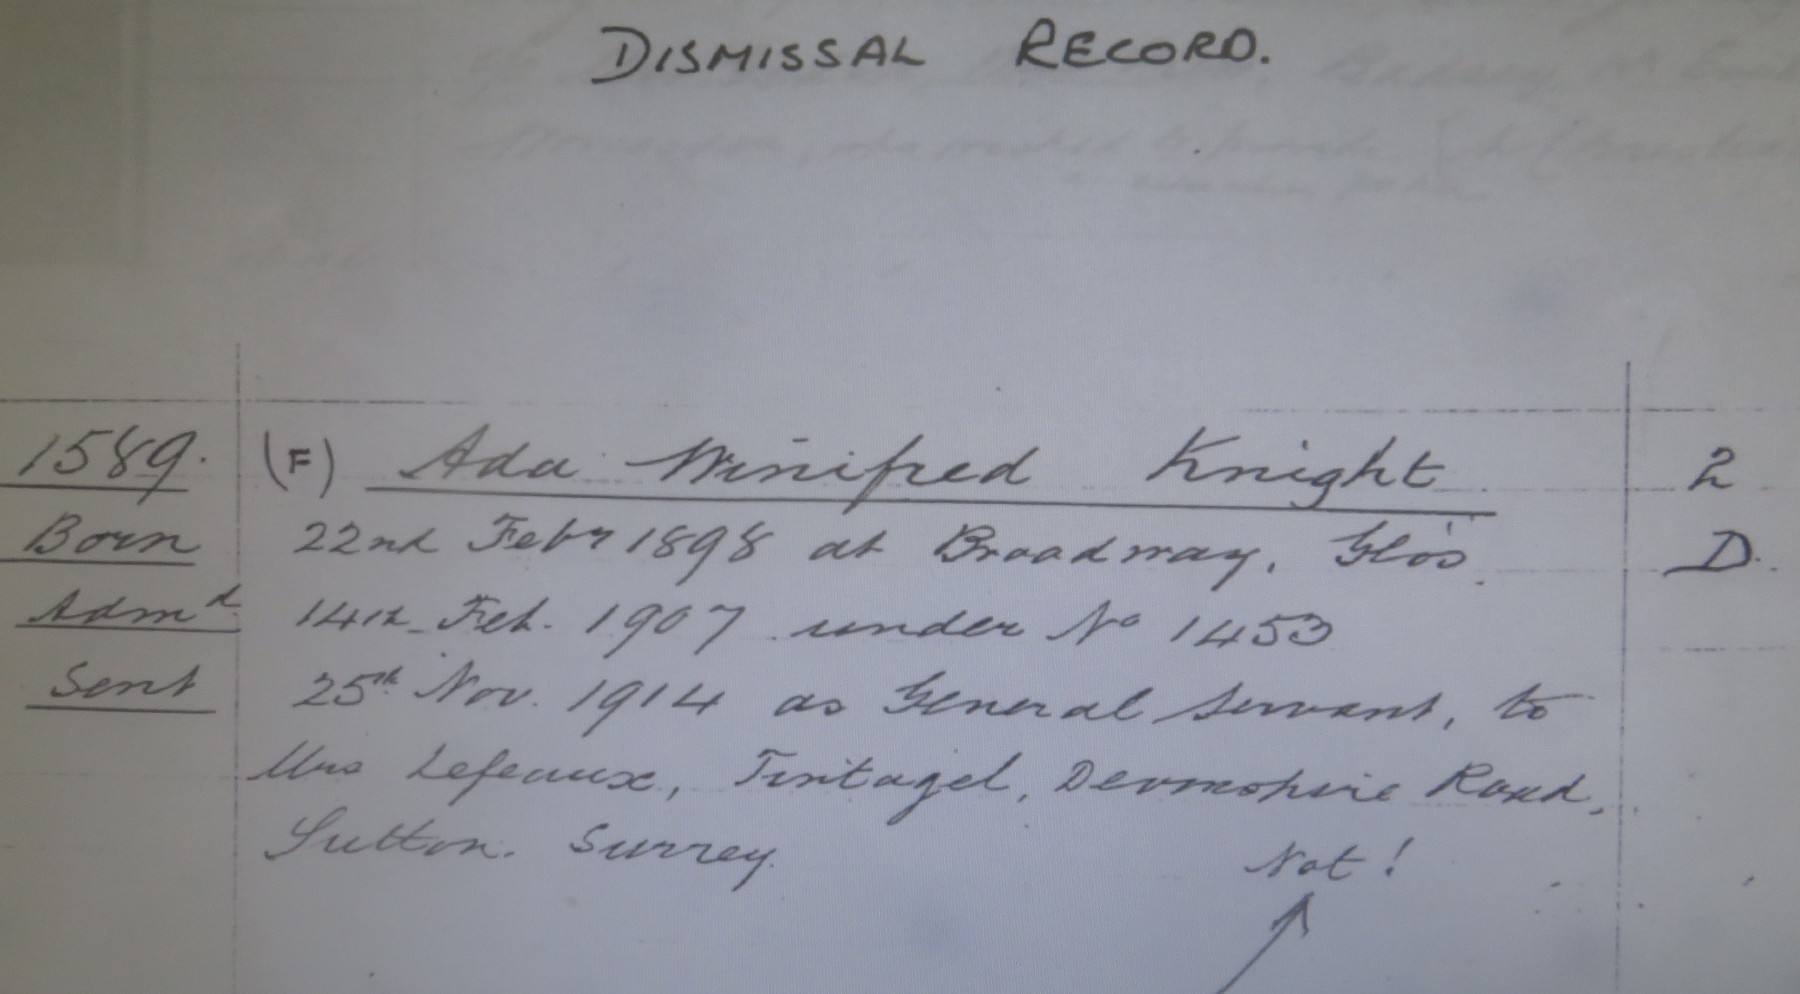 DISMISSAL RECORD.
1589. (F) Ada Winifred Knight 2
Born 22nd Feby 1898 at Broadway, Glos. D.
Admd. 14th Feb. 1907 under No 1453
Sent 25th Nov. 1914 as General Servant, to
Mrs Lefeaux, Tintagel, Devonshire Road,
Sutton. Surrey.
Not!